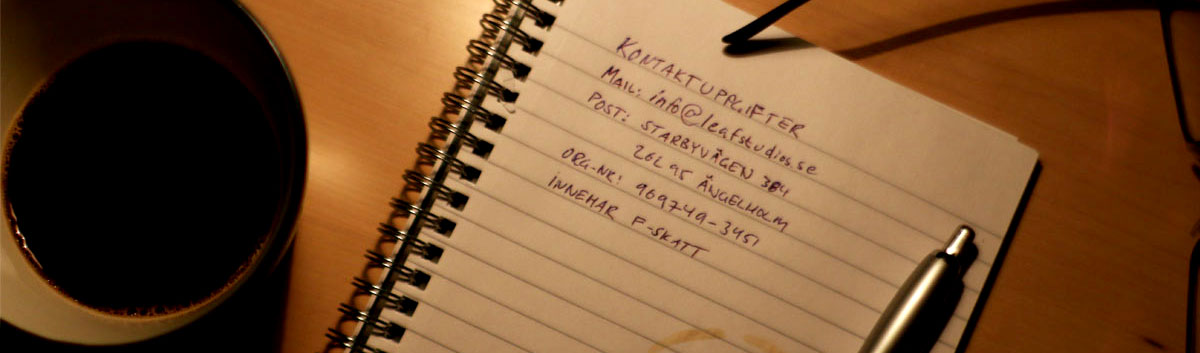 KONTAKTUPPGIFTER
MAIL: info@leafstudios.se
POST: STARBYVÄGEN 384
262 95 ÄNGELHOLM
ORG-NR: 969749-3451
INNEHAR F-SKATT